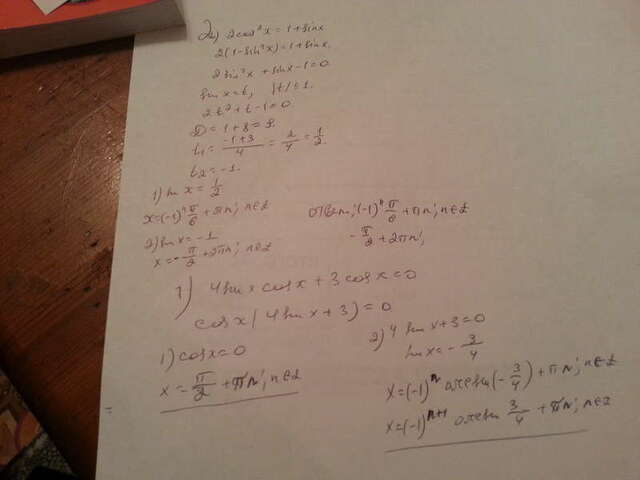 2) 2cos²x = 1 + sinx
2(1-sin²x) = 1 + sinx
2sin²x + sinx - 1 = 0
sin x = t, |t| ≤ 1.
2t² + t - 1 = 0
D = 1 + 8 = 9.
t₁ = (-1+3)/4 = 2/4 = 1/2.
t₂ = -1.
1) sin x = 1/2
x = (-1)ⁿ π/6 + πn; n∈Z
2) sin x = -1
x = -π/2 + 2πn; n∈Z
Ответ: (-1)ⁿ π/6 + πn; n∈Z
-π/2 + 2πn;
1) 4sin x cosx + 3 cosx = 0
cosx (4sin x + 3) = 0
1) cosx = 0
x = π/2 + πn; n∈Z
2) 4 sin x + 3 = 0
sin x = -3/4
x = (-1)ⁿ arcsin(-3/4) + πn; n∈Z
x = (-1)ⁿ⁺¹ arcsin 3/4 + πn; n∈Z